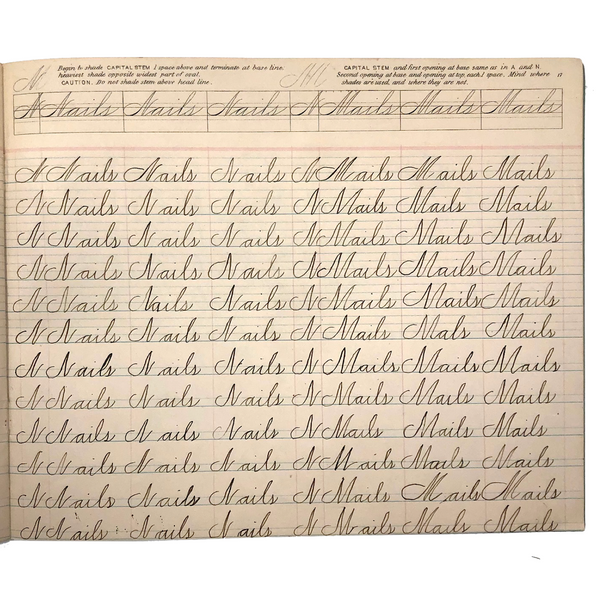 N
Begin to shade CAPITAL STEM 1 space above and terminate at base line.
heaviest shade opposite widest part of oval.
CAUTION. Do not shade stem above head line.
CAPITAL STEM and first opening at base same as in A and N.
Second opening at base and opening at top, each 1 space. Mind where
shades are used, and where they are not.
N Nails Nails Nails N Mails Mails Mails
N Nails Nails Nails N Mails Mails Mails
N Nails Nails Nails N Mails Mails Mails
N Nails Nails Nails N Mails Mails Mails
N Nails Nails Nails N Mails Mails Mails
N Nails Nails Nails N Mails Mails Mails
N Nails Nails Nails N Mails Mals Mails
N Nails Nails Nails N Mails Mails Mails
N Nails Nails Nails N Mails Mails Mails
N Nails Nails Nails N Mails Mails Mails
N Nails Nails Nails N Mails Mails Mails
N Nails Nails Nails N Mails Mails Mails
N Nails Nails Nails N Mails Mails Mails